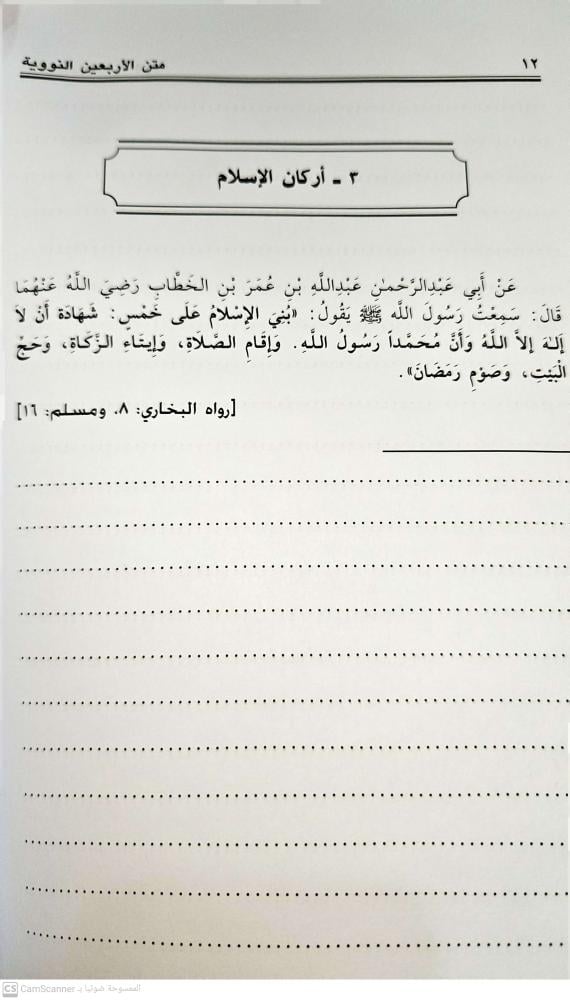 ١٢ متن الأربعين النووية
٣ ـ أركان الإسلام
عَنْ أَبِي عَبْدِالرَّحْمـٰنِ عَبْدِاللَّهِ بْنِ عُمَرَ بْنِ الخَطَّابِ رَضِيَ اللَّهُ عَنْهُمَا
قَالَ: سَمِعْتُ رَسُولَ اللَّه ﷺ يَقُولُ: «بُنِيَ الإِسْلَامُ عَلَى خَمْسٍ: شَهَادَة أَنْ لاَ
إِلـٰهَ إِلاَّ اللَّهُ وَأَنَّ مُحَمَّداً رَسُولُ اللَّهِ. وَإِقَامِ الصَّلَاةِ، وَإِيتَاءِ الزَّكَاةِ، وَحَجِّ
الْبَيْتِ، وَصَوْمِ رَمَضَانَ».
[رواه البخاري: ٨. ومسلم: ١٦]
CS CamScanner الممسوحة ضوئيا بـ